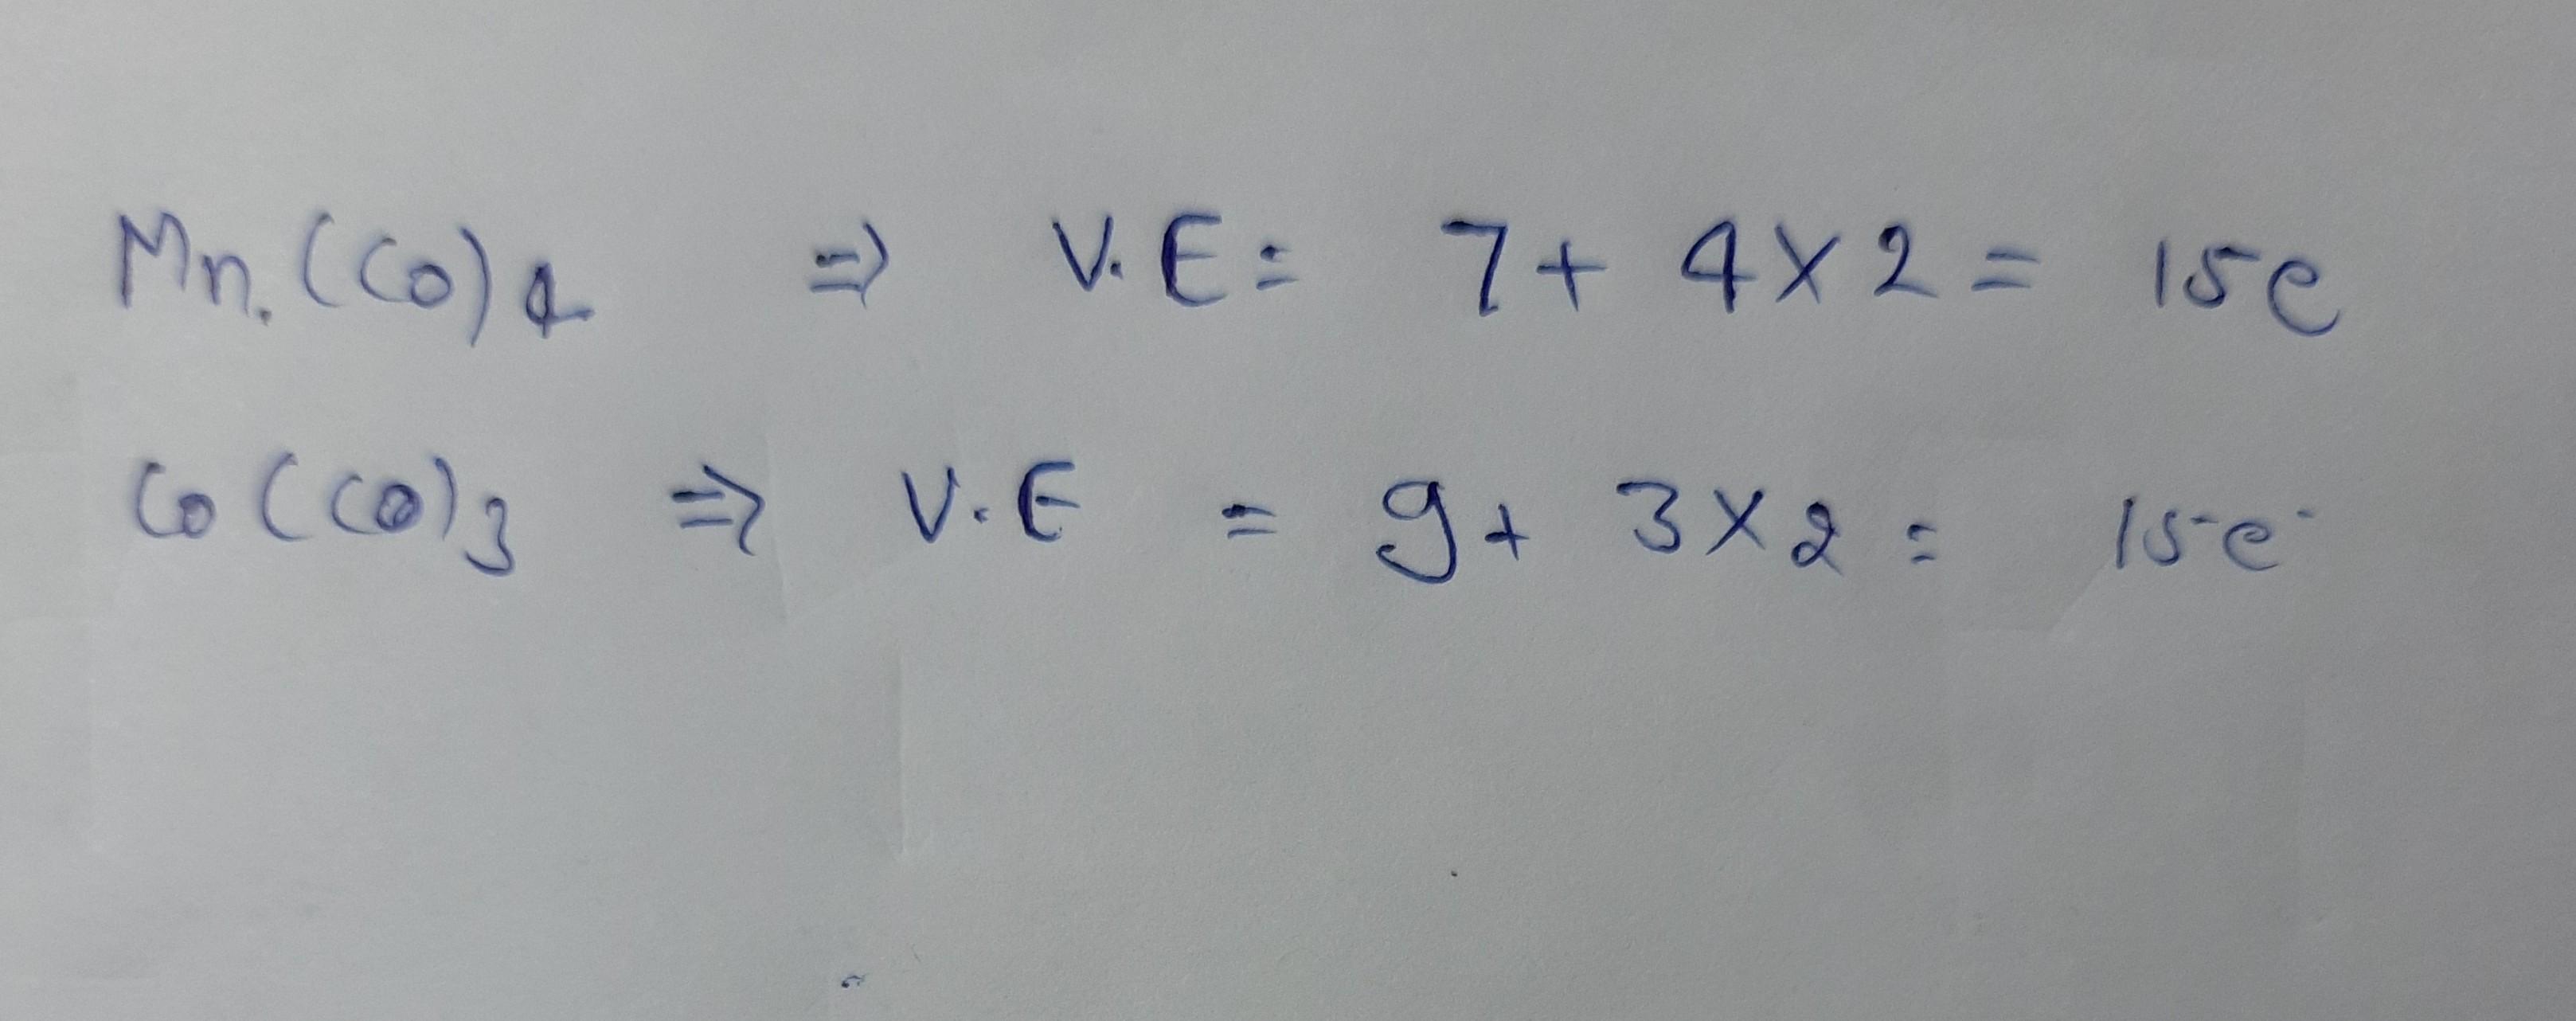 Mn.(CO)4 => V.E = 7 + 4 X 2 = 15e
Co(CO)3 => V.E = 9 + 3 X 2 = 15e-